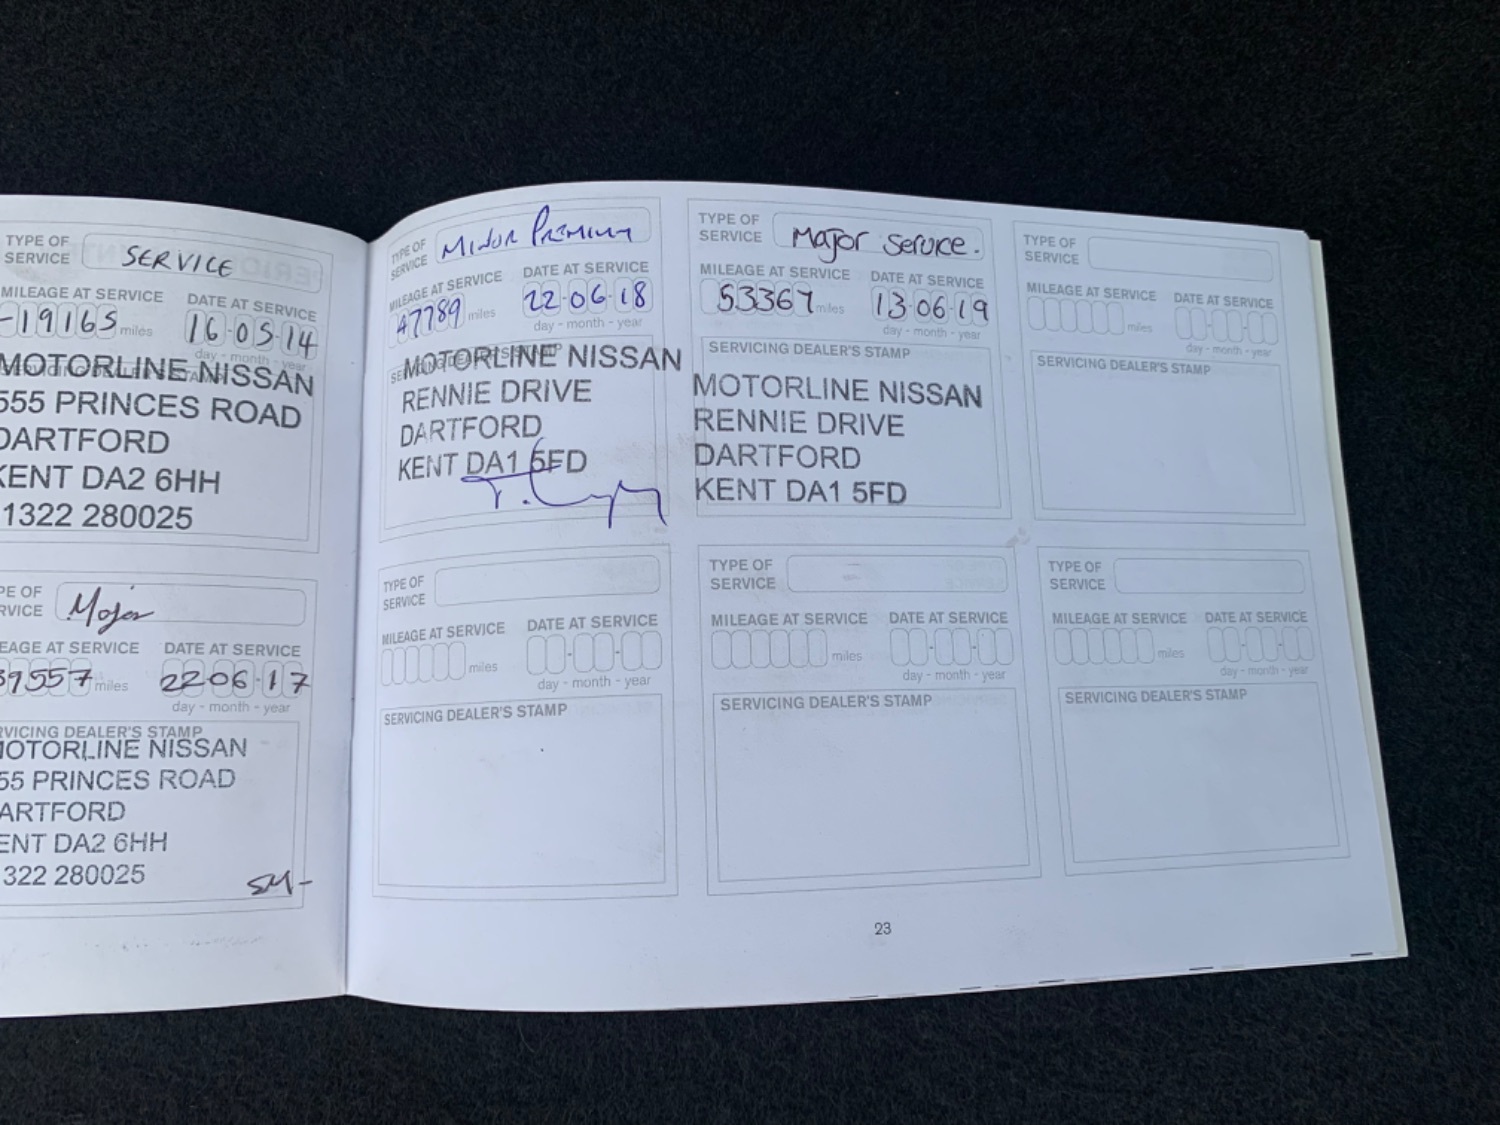 TYPE OF
SERVICE SERVICE
MILEAGE AT SERVICE DATE AT SERVICE
-19165 miles 16-05-14
day - month - year
SERVICING DEALER'S STAMP
MOTORLINE NISSAN
555 PRINCES ROAD
DARTFORD
KENT DA2 6HH
1322 280025
PE OF
RVICE Major
EAGE AT SERVICE DATE AT SERVICE
37557 miles 22 06-17
day - month - year
RVICING DEALER'S STAMP
MOTORLINE NISSAN
55 PRINCES ROAD
ARTFORD
ENT DA2 6HH
322 280025
TYPE OF
SERVICE MINOR PREMIUM
MILEAGE AT SERVICE DATE AT SERVICE
47789 miles 22-06-18
day - month - year
SERVICING DEALER'S STAMP
MOTORLINE NISSAN
RENNIE DRIVE
DARTFORD
KENT DA1 5FD
TYPE OF
SERVICE Major Service.
MILEAGE AT SERVICE DATE AT SERVICE
53367 miles 13-06-19
day - month - year
SERVICING DEALER'S STAMP
MOTORLINE NISSAN
RENNIE DRIVE
DARTFORD
KENT DA1 5FD
TYPE OF
SERVICE
MILEAGE AT SERVICE DATE AT SERVICE
miles
day - month - year
SERVICING DEALER'S STAMP
TYPE OF
SERVICE
MILEAGE AT SERVICE DATE AT SERVICE
miles
day - month - year
SERVICING DEALER'S STAMP
TYPE OF
SERVICE
MILEAGE AT SERVICE DATE AT SERVICE
miles
day - month - year
SERVICING DEALER'S STAMP
TYPE OF
SERVICE
MILEAGE AT SERVICE DATE AT SERVICE
miles
day - month - year
SERVICING DEALER'S STAMP
23